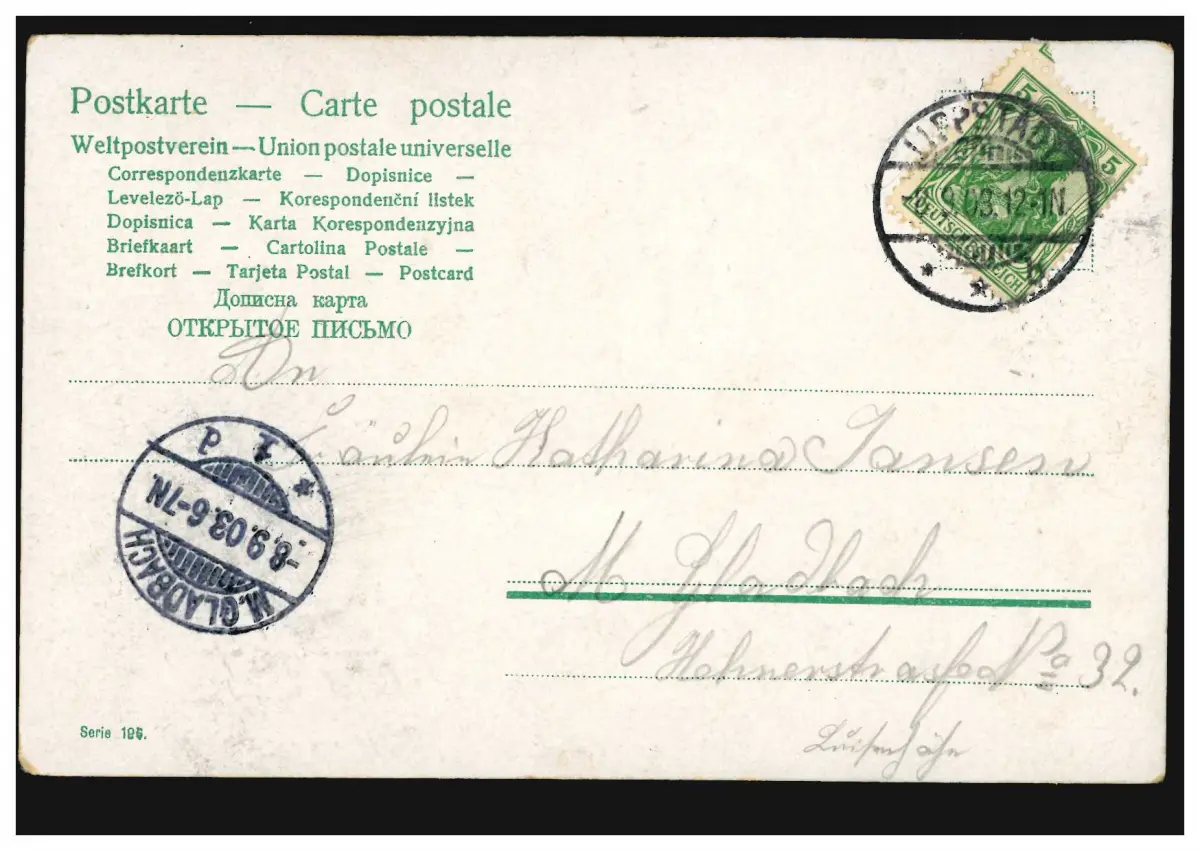 Postkarte — Carte postale
Weltpostverein — Union postale universelle
Correspondenzkarte — Dopisnice —
Levelező-Lap — Korespondenční listek
Dopisnica — Karta Korespondenzyjna
Briefkaart — Cartolina Postale —
Brefkort — Tarjeta Postal — Postcard
Дописна карта
ОТКРЫТОЕ ПИСЬМО
5 5
DEUTSCHES REICH
LIPPSTADT
9.03.12-1N.
b
An
Fräulein Katharina Jansen
M. Gladbach
No 32.
Luisenhöhe
M. GLADBACH
-8.9.03.6-7N.
1 d
Serie 196.